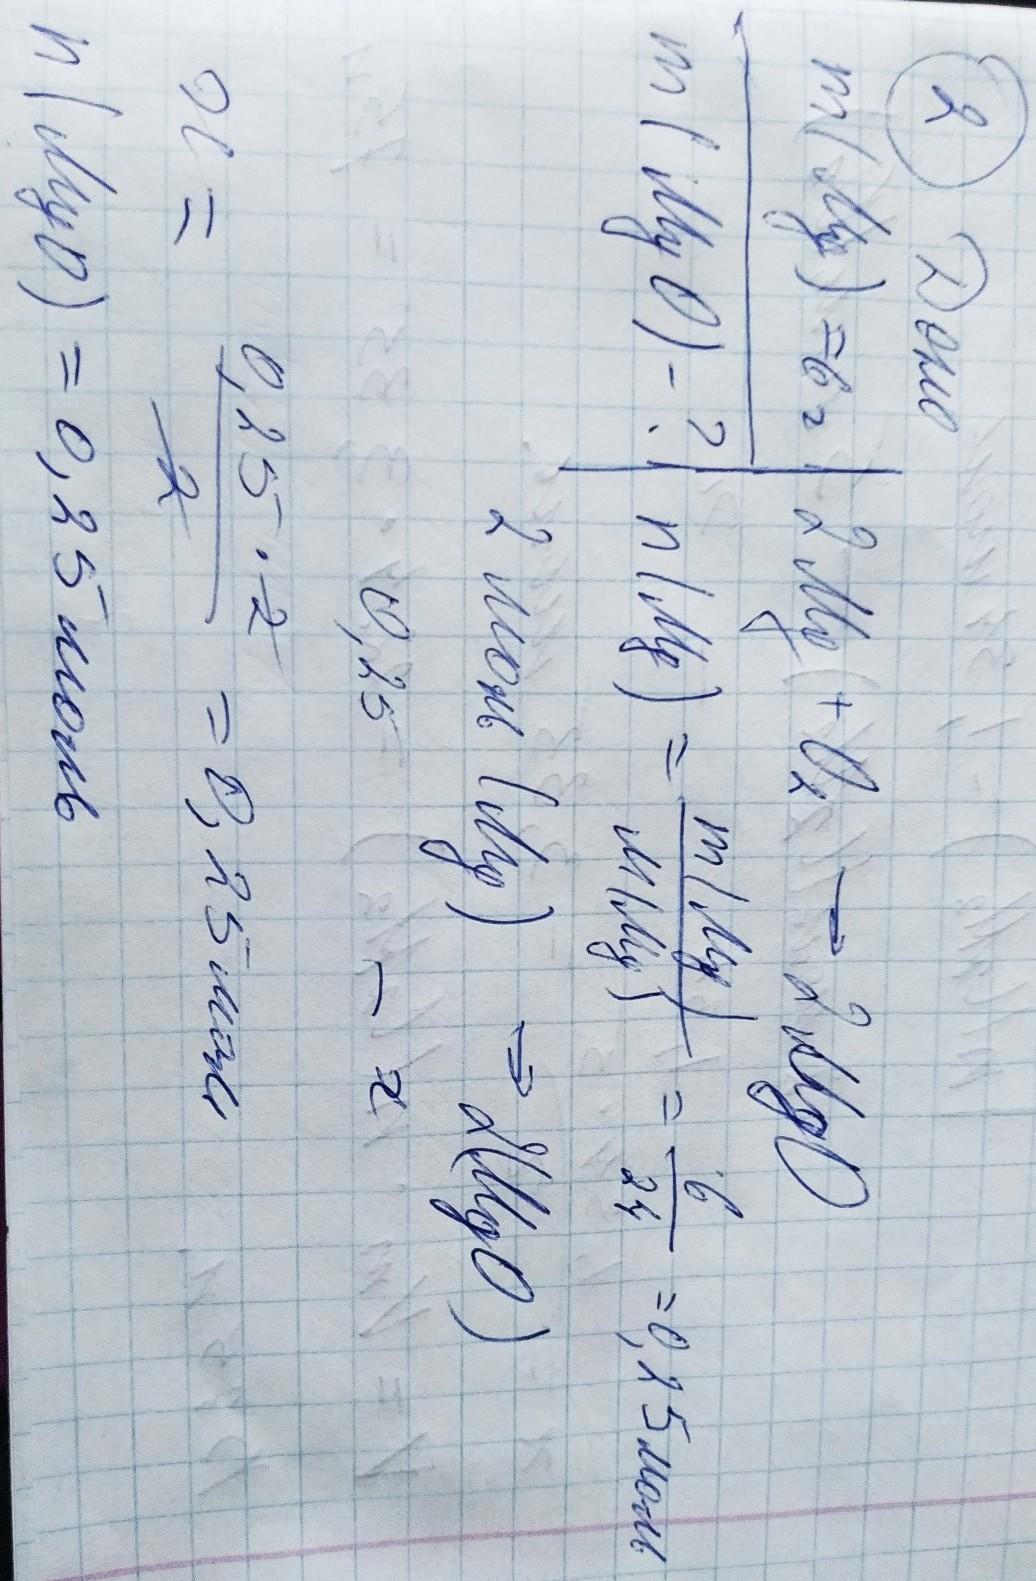 2 Дано
m(Mg) = 6 г
m(MgO) - ?
2Mg + O2 → 2MgO
n(Mg) = m(Mg) / M(Mg) = 6 / 24 = 0,25 моль
2 моль (Mg) → 2(MgO)
0,25 - x
x = 0,25 · 2 / 2 = 0,25 моль
n(MgO) = 0,25 моль